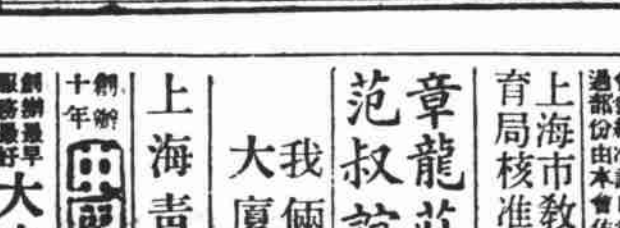 過部份由本會
上海市教
育局核准
章龍
范叔
我倆
大廈
上海青
創辦
十年
創辦最早
服務最好
大